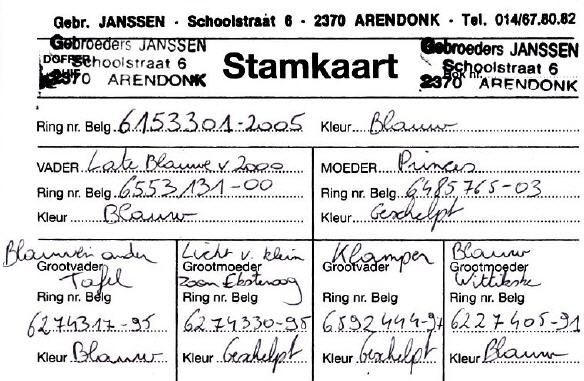 Gebr. JANSSEN - Schoolstraat 6 - 2370 ARENDONK - Tel. 014/67.80.82
Gebroeders JANSSEN
Schoolstraat 6
2370 ARENDONK
Stamkaart
Gebroeders JANSSEN
Schoolstraat 6
2370 ARENDONK
Ring nr. Belg 6153301-2005 Kleur Blauw
VADER Late Blauwe v 2000 MOEDER Princes
Ring nr. Belg 6553131-00 Ring nr. Belg 6485765-03
Kleur Blauw Kleur Geschelpt
Blauwen onder Licht v. klein Klamper Blauw
Grootvader Grootmoeder Grootvader Grootmoeder
Tafel Zoon Wittikske
Ring nr. Belg Ring nr. Belg Ring nr. Belg Ring nr. Belg
6274317-95 6274330-95 6592444-97 6227405-91
Kleur Blauw Kleur Geschelpt Kleur Geschelpt Kleur Blauw